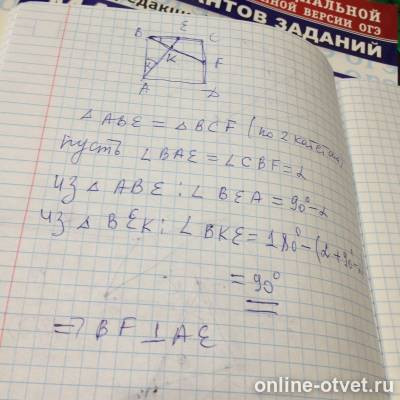 ЦИОНАЛЬНОЙ
ВЕРСИИ ОГЭ
АНТОВ ЗАДАНИЙ
B E C
K F
A D
△ ABE = △ BCF ( по 2 катетам
пусть ∠ BAE = ∠ CBF = α
из △ ABE : ∠ BEA = 90° - α
из △ BEK : ∠ BKE = 180° - (α + 90° -
= 90°
=> BF ⊥ AE
online-otvet.ru